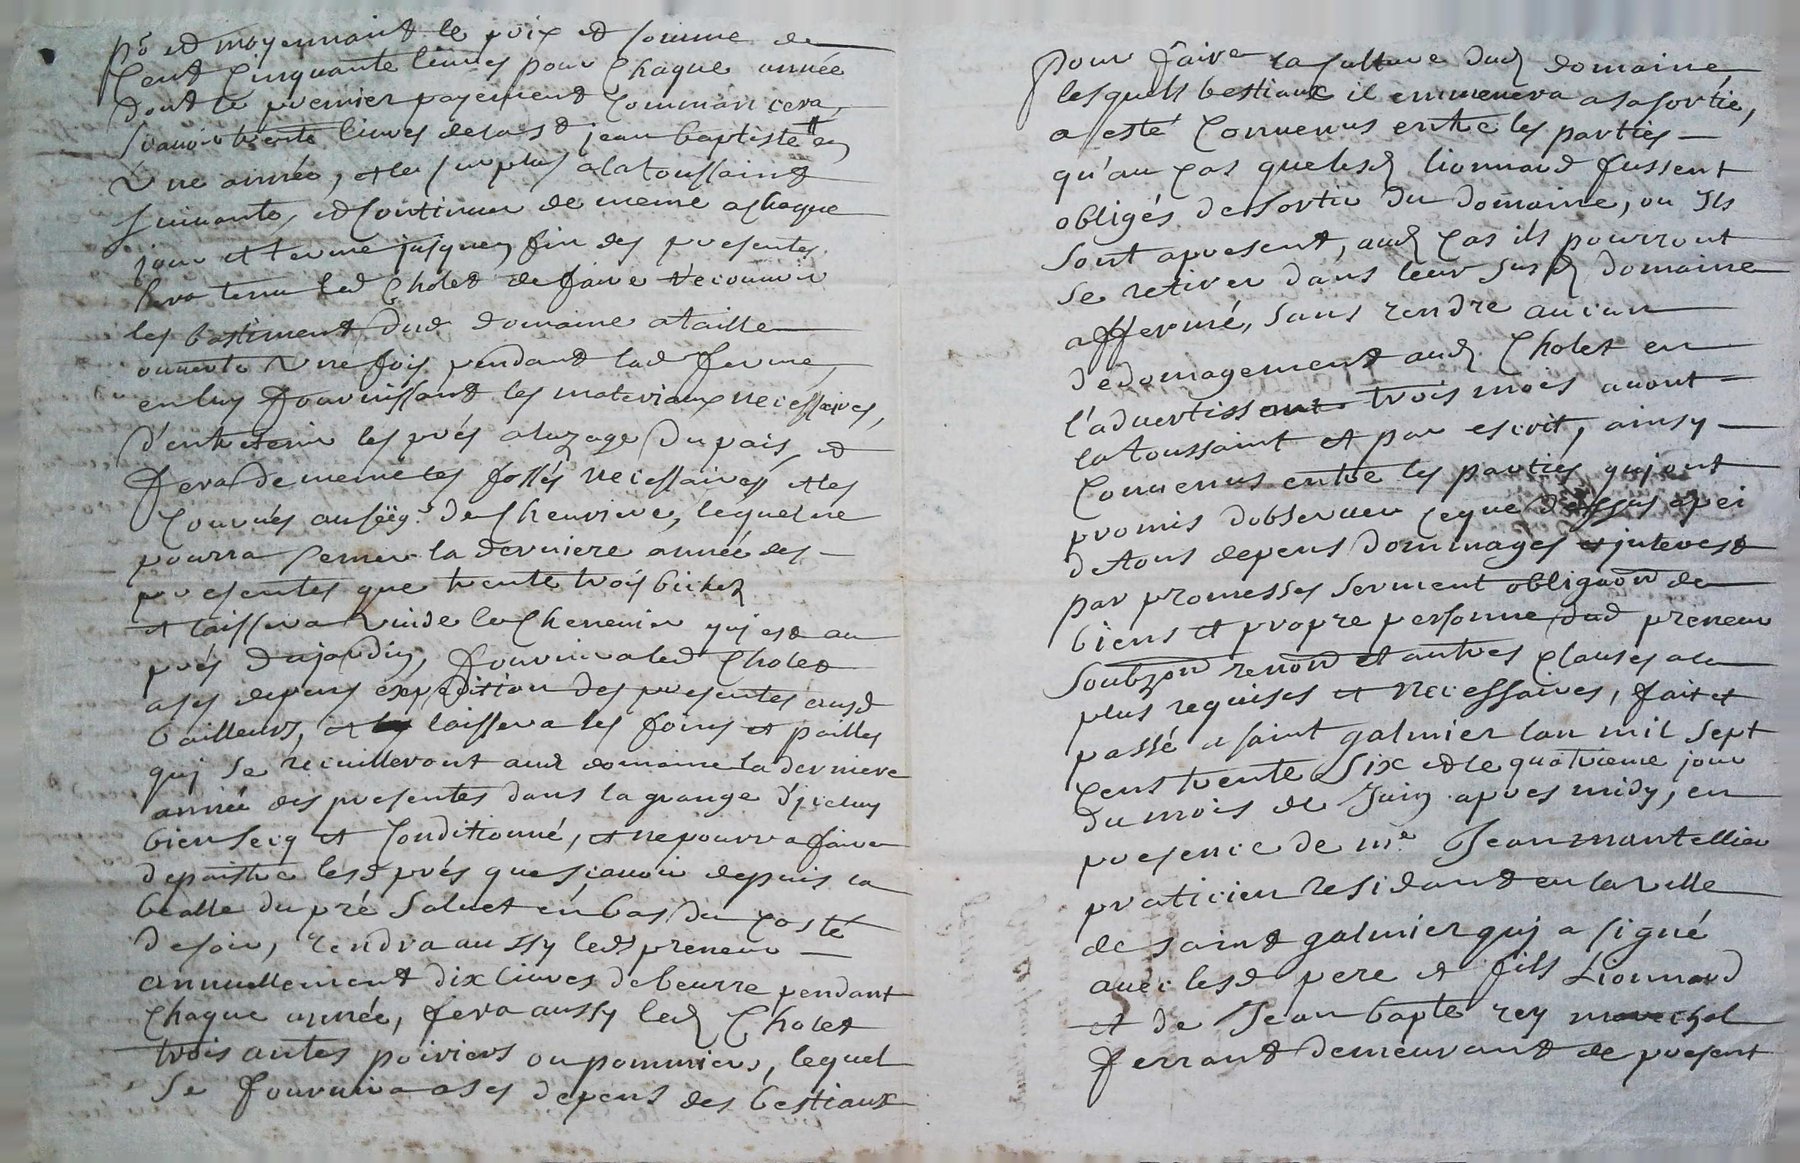 po et moyennant le prix et somme de
Cent Cinquante livres pour Chaque année
dont le premier payement Commancera,
scavoir trente livres de la st jean baptiste en
Une année, et le surplus a la toussaint
suivante, et Continuer de meme a chaque
jour et terme jusques fin des presentes
sera tenu led Cholet de faire recouvrir
les bastiment dud domaine a taille
ouverte Une fois pendant lad ferme
en luy fournissant les materiaux necessaires,
d'entretenir les prés a luzage du pais, et
fera de meme les fossés necessaires et les
Courvés au seigr de Chevriere, lequel ne
pourra semer la derniere année des
presentes que trente trois bichets
et laissera Vuide le Chenevier quj est au
prés du jardin, fournira led Cholet
a ses depens expedition des presentes ausd
bailleurs, et laissera les foins et pailles
quj se recuilleront aud domaine la derniere
année des presentes dans la grange d'jceluy
bien secq et Conditionné, et ne pourra faire
depaistre lesd prés que scavoir depuis la
bealle du pré Salvet en bas du costé
de soir, rendra aussy led preneur
annuellement dix livres de beurre pendant
Chaque année, fera aussy led Cholet
trois antes poiriers ou pommiers, lequel
se fournira a ses depens des bestiaux
pour faire la Culture dud domaine
lesquels bestiaux il emmenera a sa sortie,
a esté Convenus entre les parties
qu'au Cas que lesd Lionnard fussent
obligés de sortir du domaine, ou Ils
sont apresent, aud Cas ils pourront
se retirer dans leur susd domaine
affermé, sans rendre aucun
dedomagement aud Cholet en
l'advertissant trois mois avant
la toussaint et par escrit, ainsy
Convenus entre les parties quj ont
promis d'observer ce que dessus a pei
de tous depens dommages et jnterest
par promesses serment obligaon de
biens et propre personne dud preneur
soubzon renon et autres Clauses a la
plus requises et necessaires, fait et
passé a saint galmier lan mil sept
Cens trente Six et le quatrieme jour
du mois de Juin apres midy, en
presence de me Jean mantellier
praticien residant en la ville
de saint galmier quj a signé
avec lesd pere et fils Lionnard
et de Jean bapte rey marechal
ferrant demeurant de present